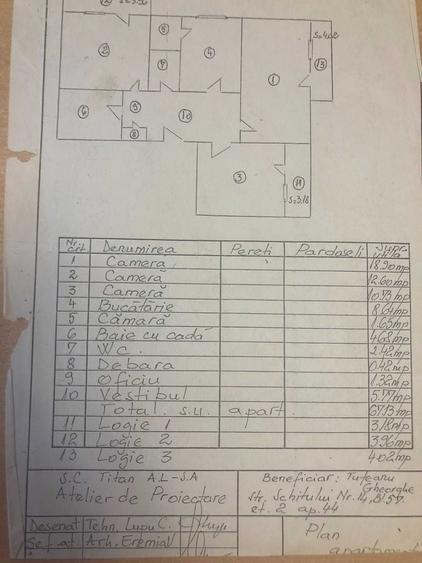 12 S=3.96
2
5
4
7
1
S=4.02
13
6
9
10
8
3
11
S=3.18
Nr. crt. Denumirea Pereți Pardoseli Supr. utilă
1 Cameră 18.90mp
2 Cameră 12.60mp
3 Cameră 10.73mp
4 Bucătărie 8.64mp
5 Cămară 1.65mp
6 Baie cu cadă 4.68mp
7 W.C. 2.42mp
8 Debara 0.42mp
9 Oficiu 1.32mp
10 Vestibul 5.77mp
Total s.u. apart. 67.13mp
11 Logie 1 3.18mp
12 Logie 2 3.96mp
13 Logie 3 4.02mp
S.C. Titan A.L-S.A
Atelier de Proiectare
Beneficiar: Tuțeanu
Gheorghe
str. Schitului Nr. 14, Bl 57
et. 2 ap. 44
Desenat Tehn. Lupu C.
Șef at. Arh. Eremia
Plan
apartament